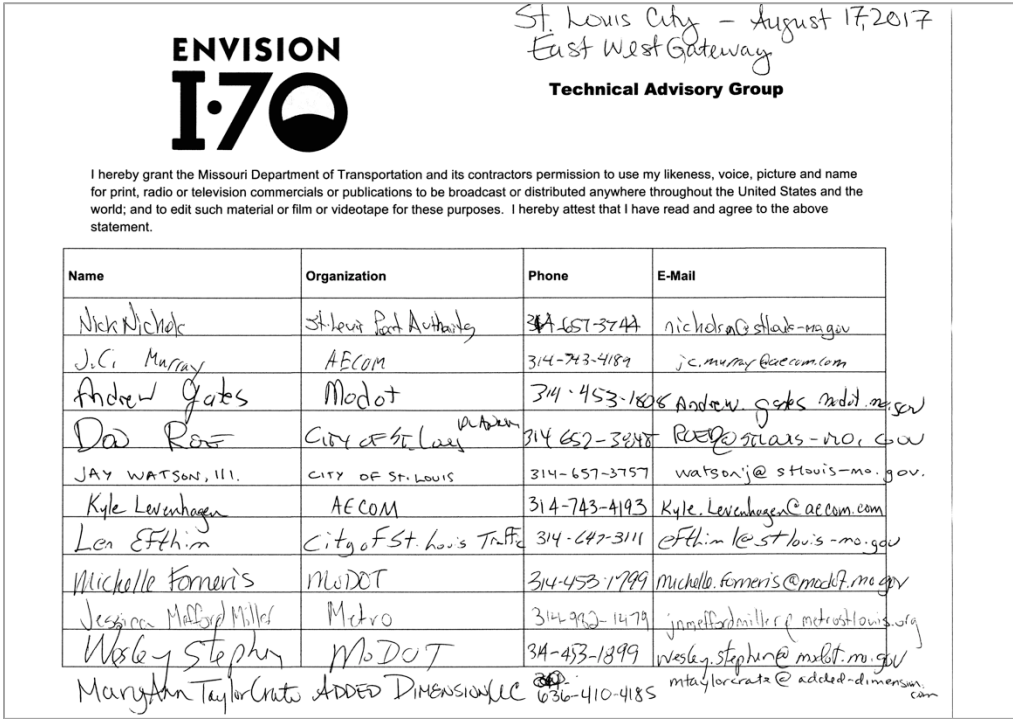 St. Louis City - August 17, 2017
East West Gateway
ENVISION
I·70
Technical Advisory Group
I hereby grant the Missouri Department of Transportation and its contractors permission to use my likeness, voice, picture and name
for print, radio or television commercials or publications to be broadcast or distributed anywhere throughout the United States and the
world; and to edit such material or film or videotape for these purposes. I hereby attest that I have read and agree to the above
statement.
Name Organization Phone E-Mail
Nick Nichols St. Louis Port Authority 314-657-3744
J.C. Murray AECOM 314-743-4189 jc.murray@aecom.com
Andrew Gates Modot 314-453-1808 Andrew.gates modot.mo.gov
Don Roe City of St. Louis 314
JAY WATSON, III. CITY OF ST. LOUIS 314-657-3757 watsonj@stlouis-mo.gov.
Kyle Levenhagen AECOM 314-743-4193 Kyle.Levenhagen@aecom.com
Len Efthim City of St. Louis Traffic 314-647-3111 efthiml@stlouis-mo.gov
Michelle Forneris MoDOT 314-453-1799 michelle.forneris@modot.mo.gov
Jessica Mefford Miller Metro 314-982-1479 jnmeffordmiller@metrostlouis.org
Wesley Stephen MoDOT 314-453-1899 Wesley.stephen@modot.mo.gov
MaryAnn TaylorCrate ADDED DIMENSION LLC 636-410-4185 mtaylorcrate@added-dimension.com